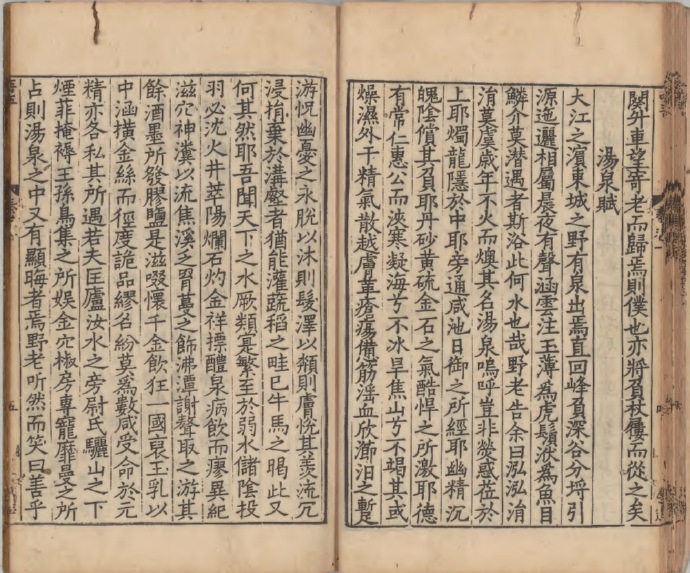 關升車望寄老而歸焉則僕也亦將負杖屨而從之矣
湯泉賦
大江之濱東城之野有泉出焉直回峰負深谷分埒引
源迤邐相屬晨夜有聲涵雲注玉薄爲虎鬚洑爲魚目
鱗介莫潛遇者斯浴此何水也哉野老告余曰泓泓涓
涓莫虞歲年不火而燠其名湯泉嗚呼豈非熒惑莅於
上耶燭龍隱於中耶旁通咸池日御之所經耶幽精沉
魄陰償其負耶丹砂黃硫金石之氣酷悍之所激耶德
有常仁惠公而浹寒凝海兮不冰旱焦山兮不竭其或
燥濕外干精氣散越膚革瘡瘍備筋淫血欣瀄汩之蹔
游怳幽憂之永脫以沐則髮澤以頮則膚悅其羨流冗
浸捐棄於溝壑者猶能灌蔬稻之畦已牛馬之暍此又
何其然耶吾聞天下之水厥類寔繁至於弱水儲陰投
羽必沈火井萃陽爛石灼金祥摽醴泉病飲而瘳異紀
滋穴神瀵以流焦溪之胃蔓之飾沸潭謝漦取之游其
餘酒墨所發膠鹽是滋啜懷千金飲狂一國裛玉乳以
中涵撗金絲而徑度詭品繆名紛莫爲數咸受命於元
精亦各私其所遇若夫匡廬汝水之旁尉氏驪山之下
煙菲掩褥王孫鳥集之所娛金穴椒房專寵靡曼之所
占則湯泉之中又有顯晦者焉野老听然而笑曰善乎
五